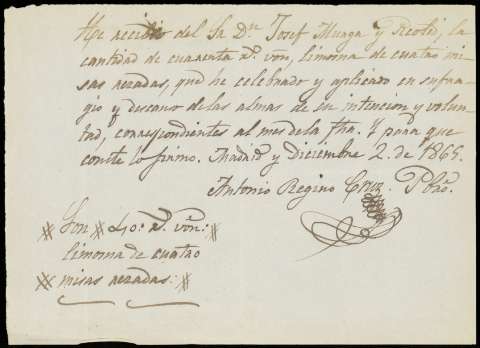 He recibido del Sr. Dn. Josef Muaga y Reoled, la
cantidad de cuarenta rs. von, limosna de cuatro mi-
sas rezadas, que he celebrado y aplicado en sufra-
gio y descanso de las almas de su intencion y volun-
tad, correspondientes al mes de la fha. Y para que
conste lo firmo. Madrid y Diciembre 2. de 1865.
Antonio Regino Cruz. Pbro.
Son 40. rs. von:
limosna de cuatro
misas rezadas: